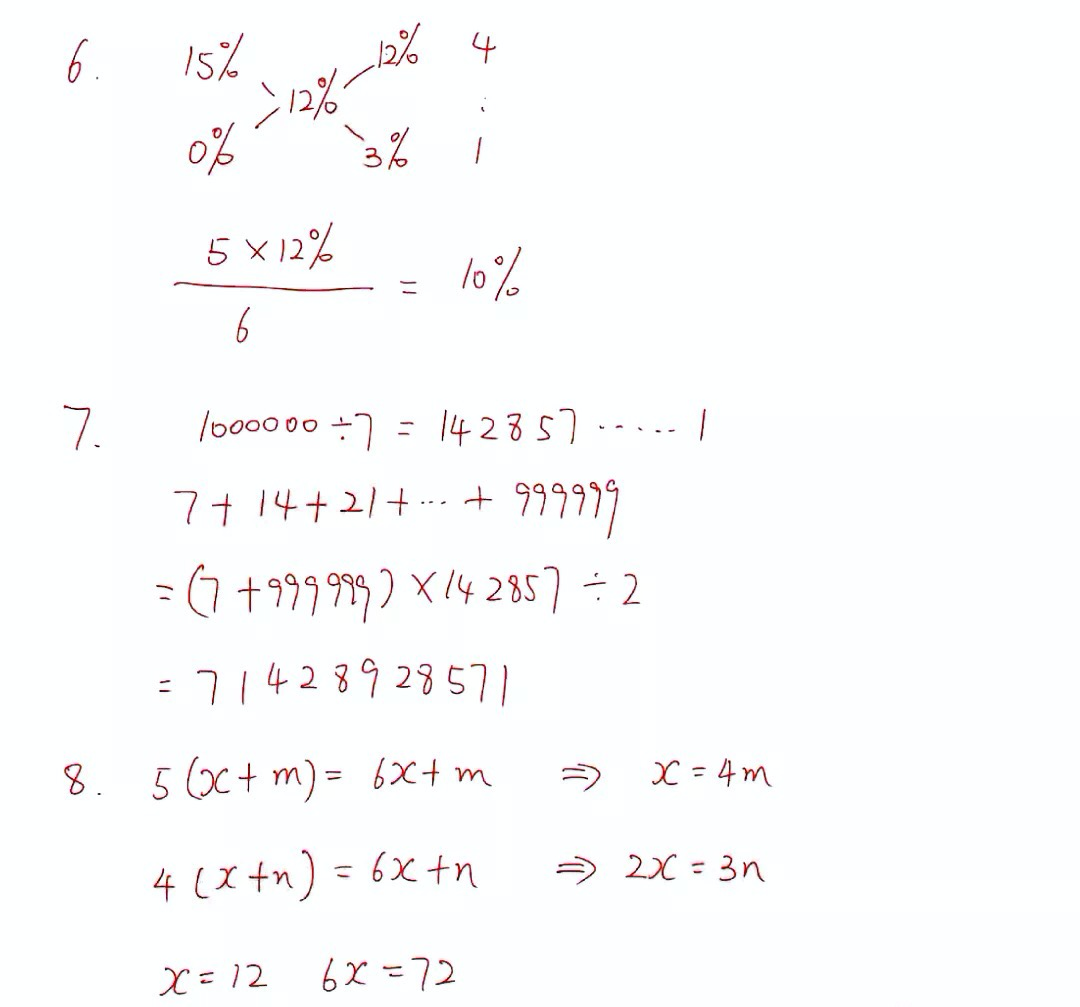 6. 15% 12% 4
12% :
0% 3% 1
5 × 12%
= 10%
6
7. 1000000 ÷ 7 = 142857 ······ 1
7 + 14 + 21 + ··· + 999999
= (7 + 999999) × 142857 ÷ 2
= 71428928571
8. 5(x + m) = 6x + m ⇒ x = 4m
4(x + n) = 6x + n ⇒ 2x = 3n
x = 12 6x = 72